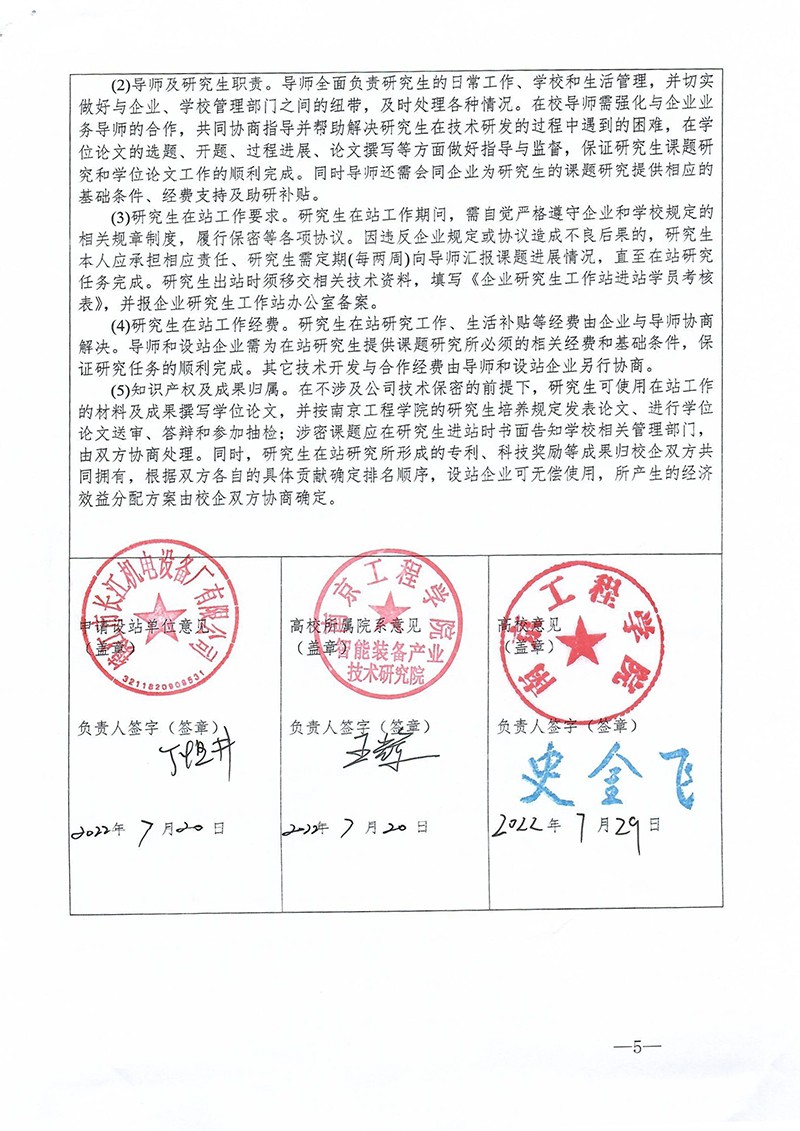 (2)导师及研究生职责。导师全面负责研究生的日常工作、学校和生活管理，并切实
做好与企业、学校管理部门之间的纽带，及时处理各种情况。在校导师需强化与企业业
务导师的合作，共同协商指导并帮助解决研究生在技术研发的过程中遇到的困难，在学
位论文的选题、开题、过程进展、论文撰写等方面做好指导与监督，保证研究生课题研
究和学位论文工作的顺利完成。同时导师还需会同企业为研究生的课题研究提供相应的
基础条件、经费支持及助研补贴。
(3)研究生在站工作要求。研究生在站工作期间，需自觉严格遵守企业和学校规定的
相关规章制度，履行保密等各项协议。因违反企业规定或协议造成不良后果的，研究生
本人应承担相应责任、研究生需定期(每两周)向导师汇报课题进展情况，直至在站研究
任务完成。研究生出站时须移交相关技术资料，填写《企业研究生工作站进站学员考核
表》，并报企业研究生工作站办公室备案。
(4)研究生在站工作经费。研究生在站研究工作、生活补贴等经费由企业与导师协商
解决。导师和设站企业需为在站研究生提供课题研究所必须的相关经费和基础条件，保
证研究任务的顺利完成。其它技术开发与合作经费由导师和设站企业另行协商。
(5)知识产权及成果归属。在不涉及公司技术保密的前提下，研究生可使用在站工作
的材料及成果撰写学位论文，并按南京工程学院的研究生培养规定发表论文、进行学位
论文送审、答辩和参加抽检；涉密课题应在研究生进站时书面告知学校相关管理部门，
由双方协商处理。同时，研究生在站研究所形成的专利、科技奖励等成果归校企双方共
同拥有，根据双方各自的具体贡献确定排名顺序，设站企业可无偿使用，所产生的经济
效益分配方案由校企双方协商确定。
市长江机电设备厂有限公司
申请设站单位意见
（盖章）
3211820908531
负责人签字（签章）
2022年 7月20日
南京工程学院
高校所属院系意见
（盖章）
智能装备产业
技术研究院
负责人签字（签章）
2022年 7月20日
南京工程学院
高校意见
（盖章）
负责人签字（签章）
史金飞
2022年 7月29日
—5—